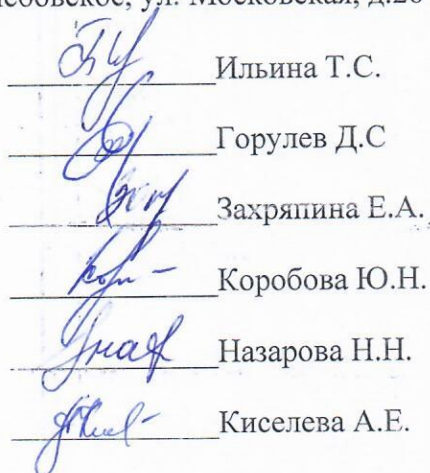 ул. Московская, д.20
Ильина Т.С.
Горулев Д.С
Захряпина Е.А.
Коробова Ю.Н.
Назарова Н.Н.
Киселева А.Е.